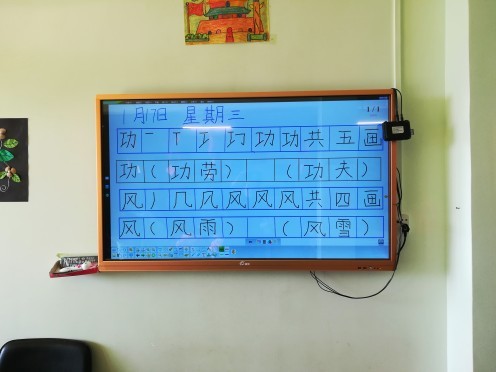 1月17日 星期三
1/1
功 一 T 工 巧 功 功 共 五 画
功 ( 功 劳 ) ( 功 夫 )
风 ) 几 几 风 风 风 共 四 画
风 ( 风 雨 ) ( 风 雪 )